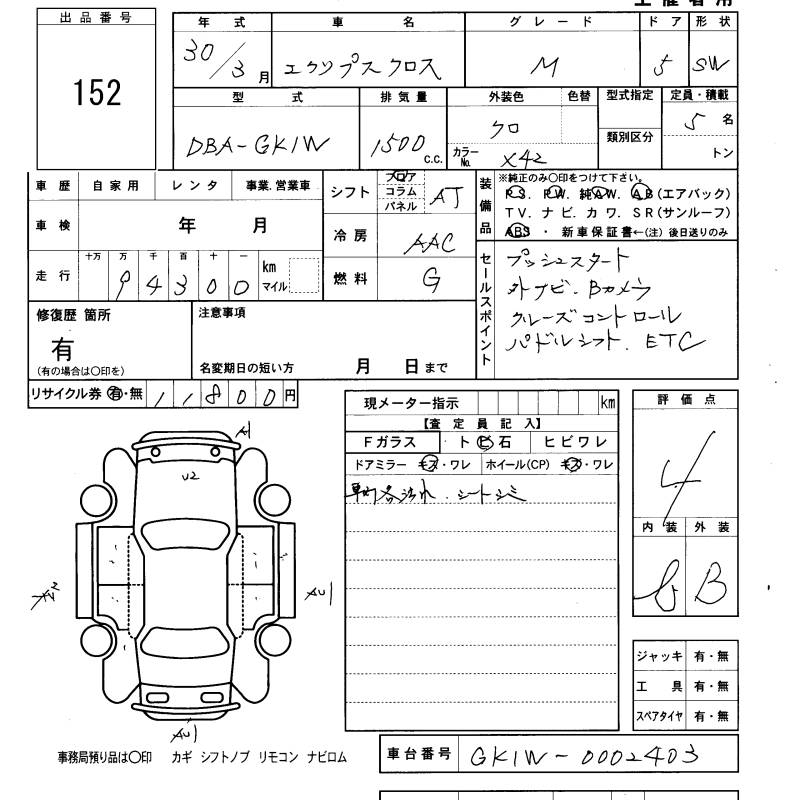 出品番号
152
年式 車名 グレード ドア 形状
30/3月 エクリプスクロス M 5 SW
型式 排気量 外装色 色替 型式指定 定員・積載
DBA-GK1W 1500 C.C. クロ 類別区分 5名
カラーNo. X42 トン
車歴 自家用 レンタ 事業.営業車
シフト フロア コラム パネル AT
装備品 ※純正のみ〇印をつけて下さい。
P.S. P.W. 純AW. A.B(エアバック)
TV. ナビ. カワ. SR(サンルーフ)
ABS ・ 新車保証書←(注)後日送りのみ
車検 年 月
冷房 AAC
走行 十万 万 千 百 十 一 km マイル
94300
燃料 G
セールスポイント
プッシュスタート
外ナビ.Bカメラ
クルーズコントロール
パドルシフト.ETC
修復歴 箇所
有
(有の場合は〇印を)
注意事項
名変期日の短い方 月 日まで
リサイクル券 有・無 11800円
現メーター指示 km
【査定員記入】
Fガラス トビ石 ヒビワレ
ドアミラー キズ・ワレ ホイール(CP) キズ・ワレ
シートシミ
評価点
4
内装 外装
B
A1
U2
AU1
AU1
ジャッキ 有・無
工具 有・無
スペアタイヤ 有・無
事務局預り品は〇印 カギ シフトノブ リモコン ナビロム
車台番号 GK1W-0002403